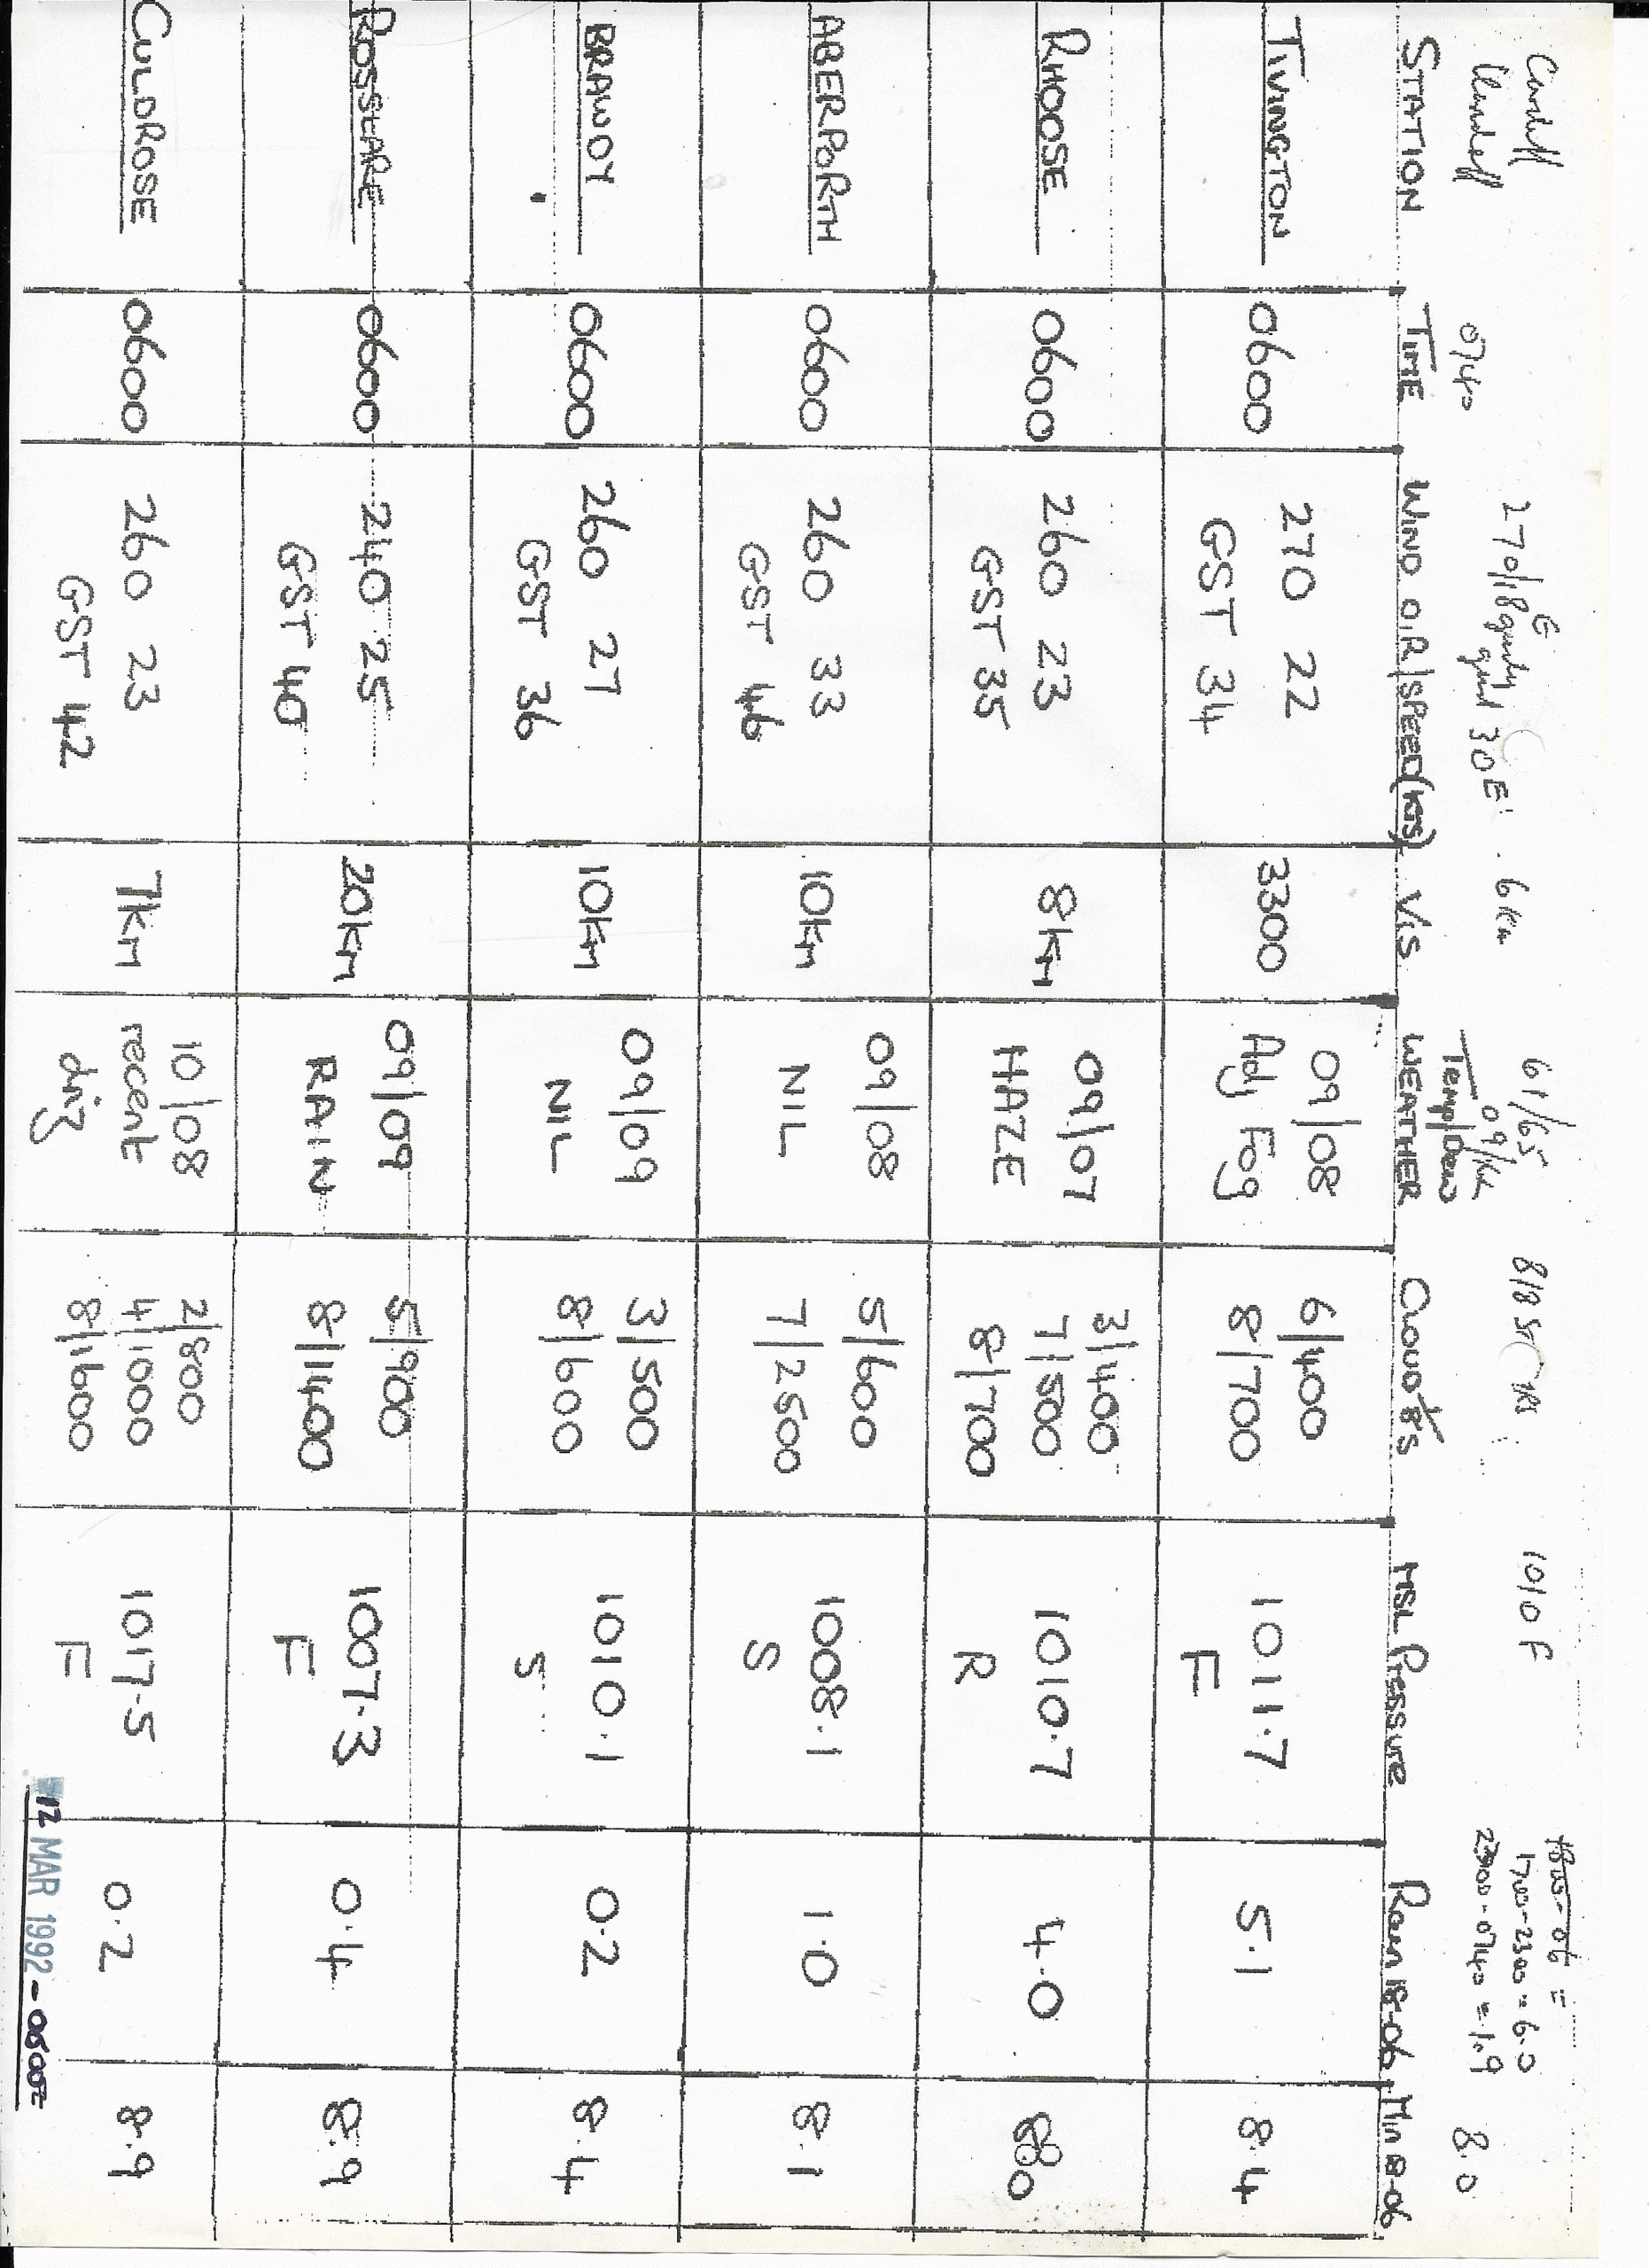 Cardiff 0740 270/18G 6km 61/65 8/8 St 1010 F 1800-06 =
gusty 09/ 1700-2300 = 6.0
good 30E Temp/Dew 2300-0740 = 1.9 8.0
STATION TIME WIND DIR/SPEED(KTS) VIS WEATHER CLOUD 1/8'S MSL Pressure Rain 18-06 Min 18-06
TIVINGTON 0600 270 22 3300 09/08 6/400 1011.7 5.1 8.4
GST 34 Adj Fog 8/700 F
RHOOSE 0600 260 23 8km 09/07 3/400 1010.7 4.0 8.0
GST 35 HAZE 7/500 R
8/700
ABERPORTH 0600 260 33 10km 09/08 5/600 1008.1 1.0 8.1
GST 46 NIL 7/2500 S
BRAWDY 0600 260 27 10km 09/09 3/500 1010.1 0.2 8.4
GST 36 NIL 8/600 S
ROSSLARE 0600 240 25 20km 09/09 5/900 1007.3 0.4 8.9
GST 40 RAIN 8/1400 F
CULDROSE 0600 260 23 7km 10/08 2/800 1017.5 0.2 8.9
GST 42 recent 4/1000 F
driz 8/1600
12 MAR 1992 - 0600Z